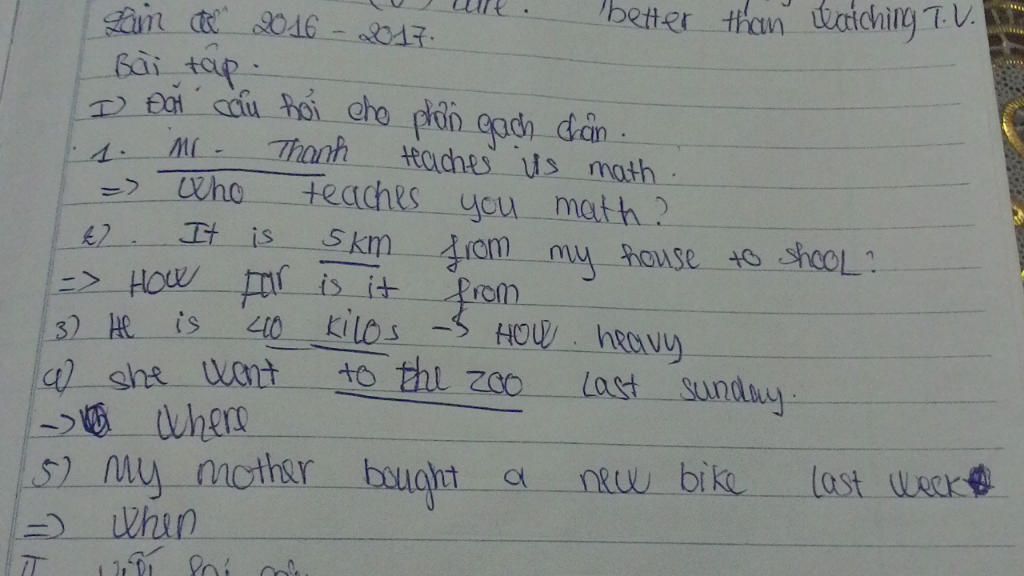 better than watching T.V.
Làm đề 2016 - 2017.
Bài tập.
I) Đặt câu hỏi cho phần gạch chân.
1. Mr. Thanh teaches us math.
=> Who teaches you math?
2). It is 5km from my house to shool?
=> How far is it from
3) He is 40 kilos -> How heavy
4) she went to the zoo last sunday.
-> Where
5) My mother bought a new bike last week
=> When
II